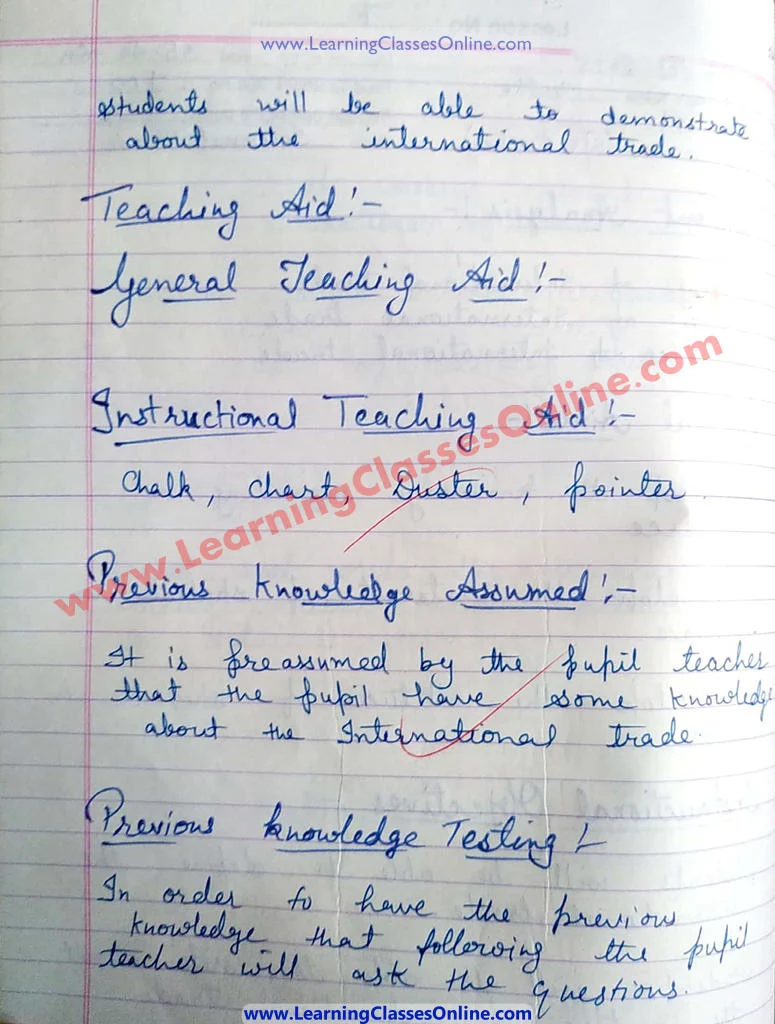 www.LearningClassesOnline.com
students will be able to demonstrate
about the international trade.
Teaching Aid :-
General Teaching Aid :-
Instructional Teaching Aid :-
Chalk, chart, Duster, pointer.
www.LearningClassesOnline.com
Previous Knowledge Assumed :-
It is preassumed by the pupil teacher
that the pupil have some knowledge
about the International trade.
Previous knowledge Testing :-
In order to have the previous
knowledge that following the pupil
teacher will ask the questions.
www.LearningClassesOnline.com